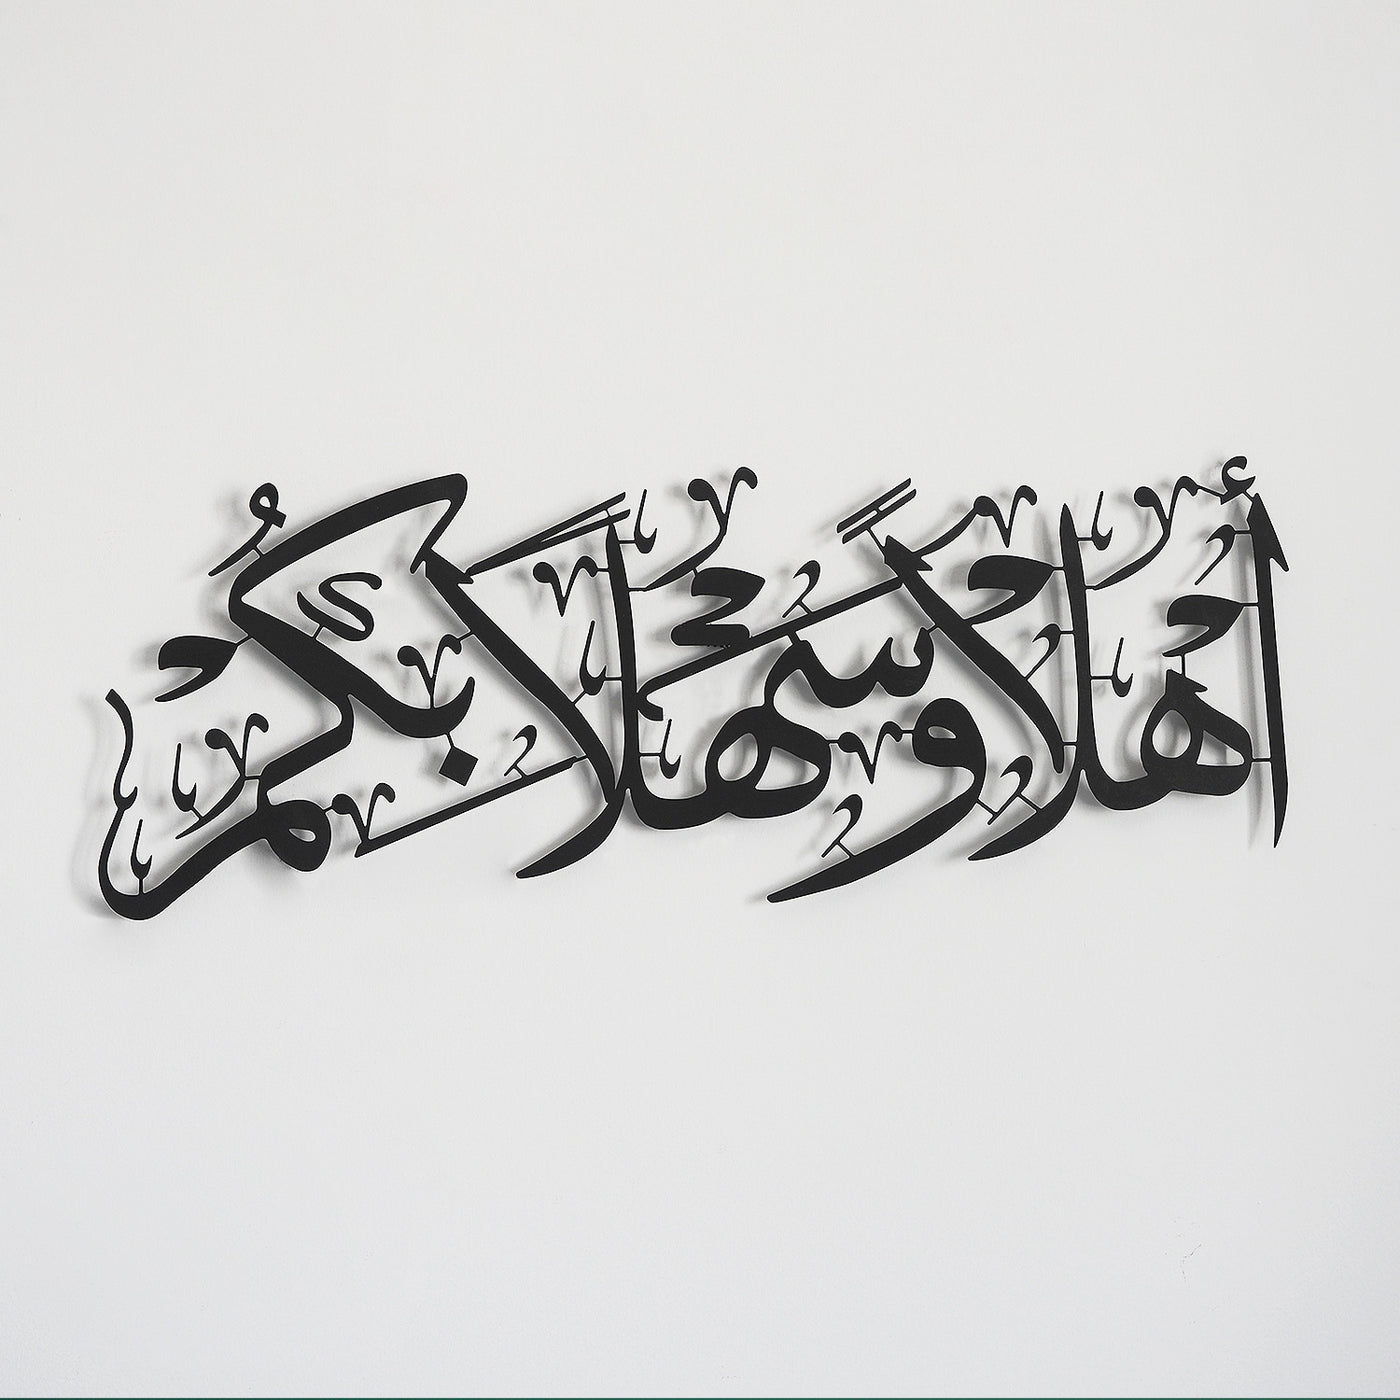 أهلاً وسهلاً بكم